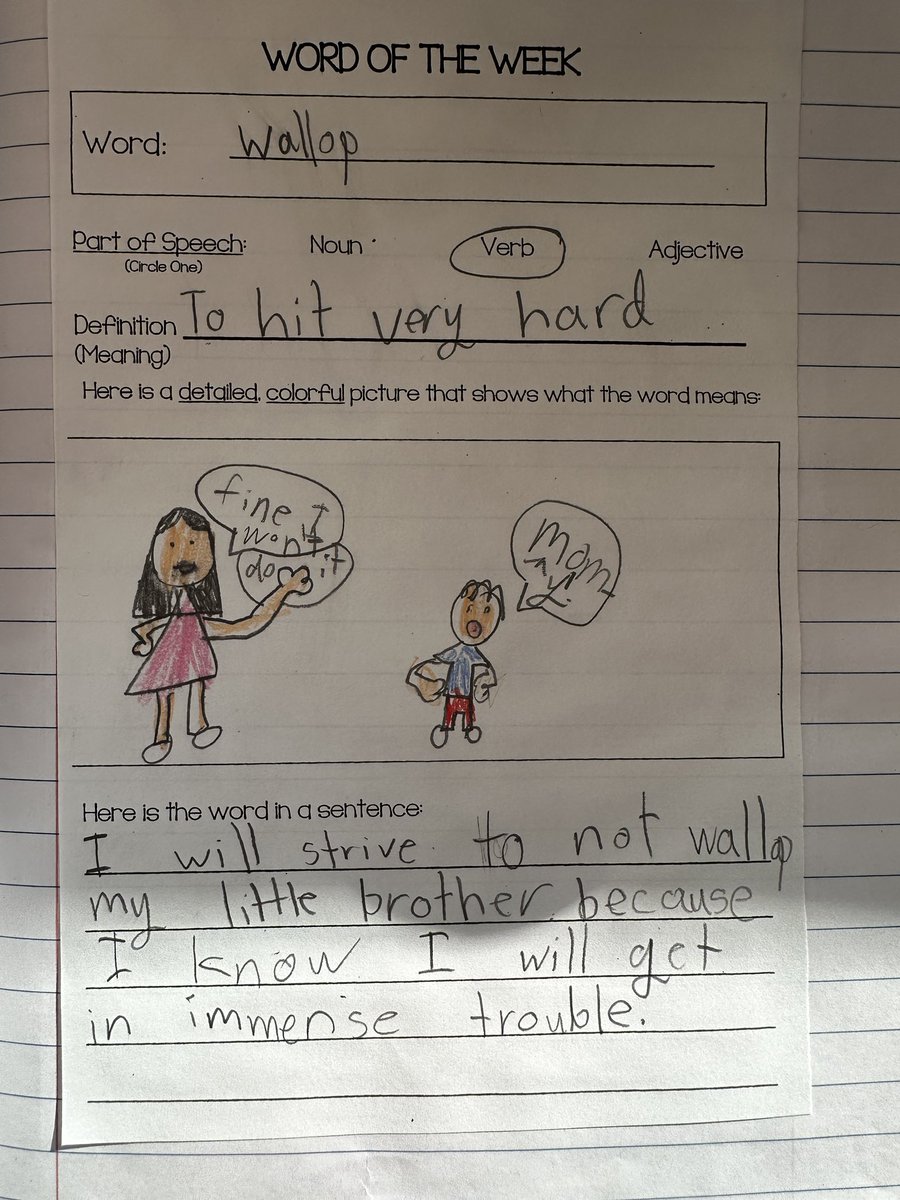 WORD OF THE WEEK
Word: Wallop
Part of Speech: Noun Verb Adjective
(Circle One)
Definition To hit very hard
(Meaning)
Here is a detailed, colorful picture that shows what the word means:
fine I
won't
do it
Mom
Here is the word in a sentence:
I will strive to not wallop
my little brother because
I know I will get
in immense trouble.